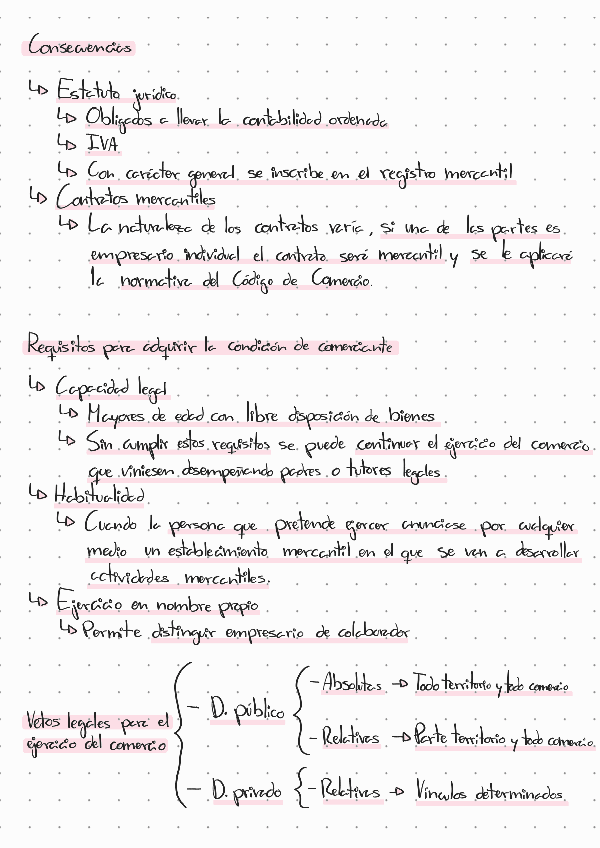 Consecuencias
↳ Estatuto jurídico.
↳ Obligados a llevar la contabilidad ordenada
↳ IVA
↳ Con carácter general se inscribe en el registro mercantil
↳ Contratos mercantiles
↳ La naturaleza de los contratos varía, si una de las partes es
empresario individual el contrato será mercantil y se le aplicará
la normativa del Código de Comercio.
Requisitos para adquirir la condición de comerciante
↳ Capacidad legal
↳ Mayores de edad con libre disposición de bienes
↳ Sin cumplir estos requisitos se puede continuar el ejercicio del comercio
que viniesen desempeñando padres o tutores legales.
↳ Habitualidad
↳ Cuando la persona que pretende ejercer anunciase por cualquier
medio un establecimiento mercantil en el que se van a desarrollar
actividades mercantiles.
↳ Ejercicio en nombre propio
↳ Permite distinguir empresario de colaborador
Vetos legales para el
ejercicio del comercio
- D. público
- Absolutas → Todo territorio y todo comercio
- Relativas → Parte territorio y todo comercio.
- D. privado
- Relativas → Vínculos determinados.